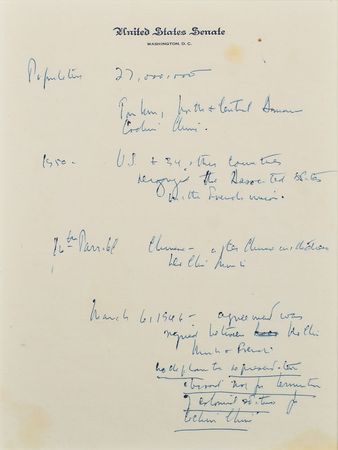 United States Senate
WASHINGTON, D.C.
Population 27,000,000
Tonkin, north & Central Annam
Cochin China.
1950 - U.S. & 34 other countries
recognized the Associated States
in the French union.
16th Parallel Chinese - after Chinese withdrew
Ho Chi Minh
March 6, 1946 - agreement was
signed between Ho Chi
Minh & French
no representation
abroad nor for termination
of colonial status for
Cochin China